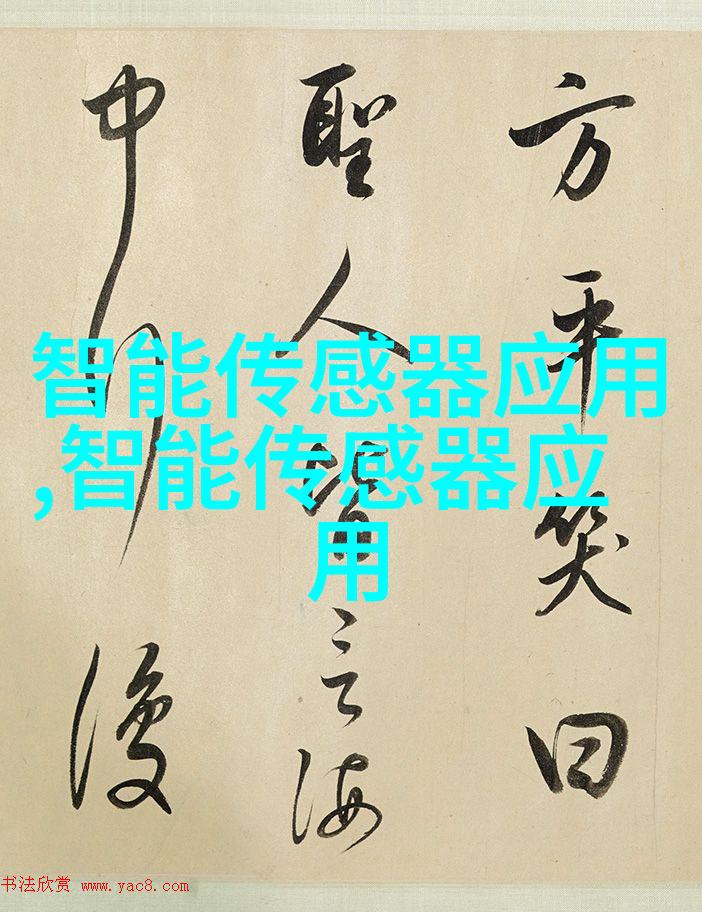 方平笑曰
聖人皆言海
中行復
智能传感器应用
,智能传感器应
用
书法欣赏 www.yac8.com